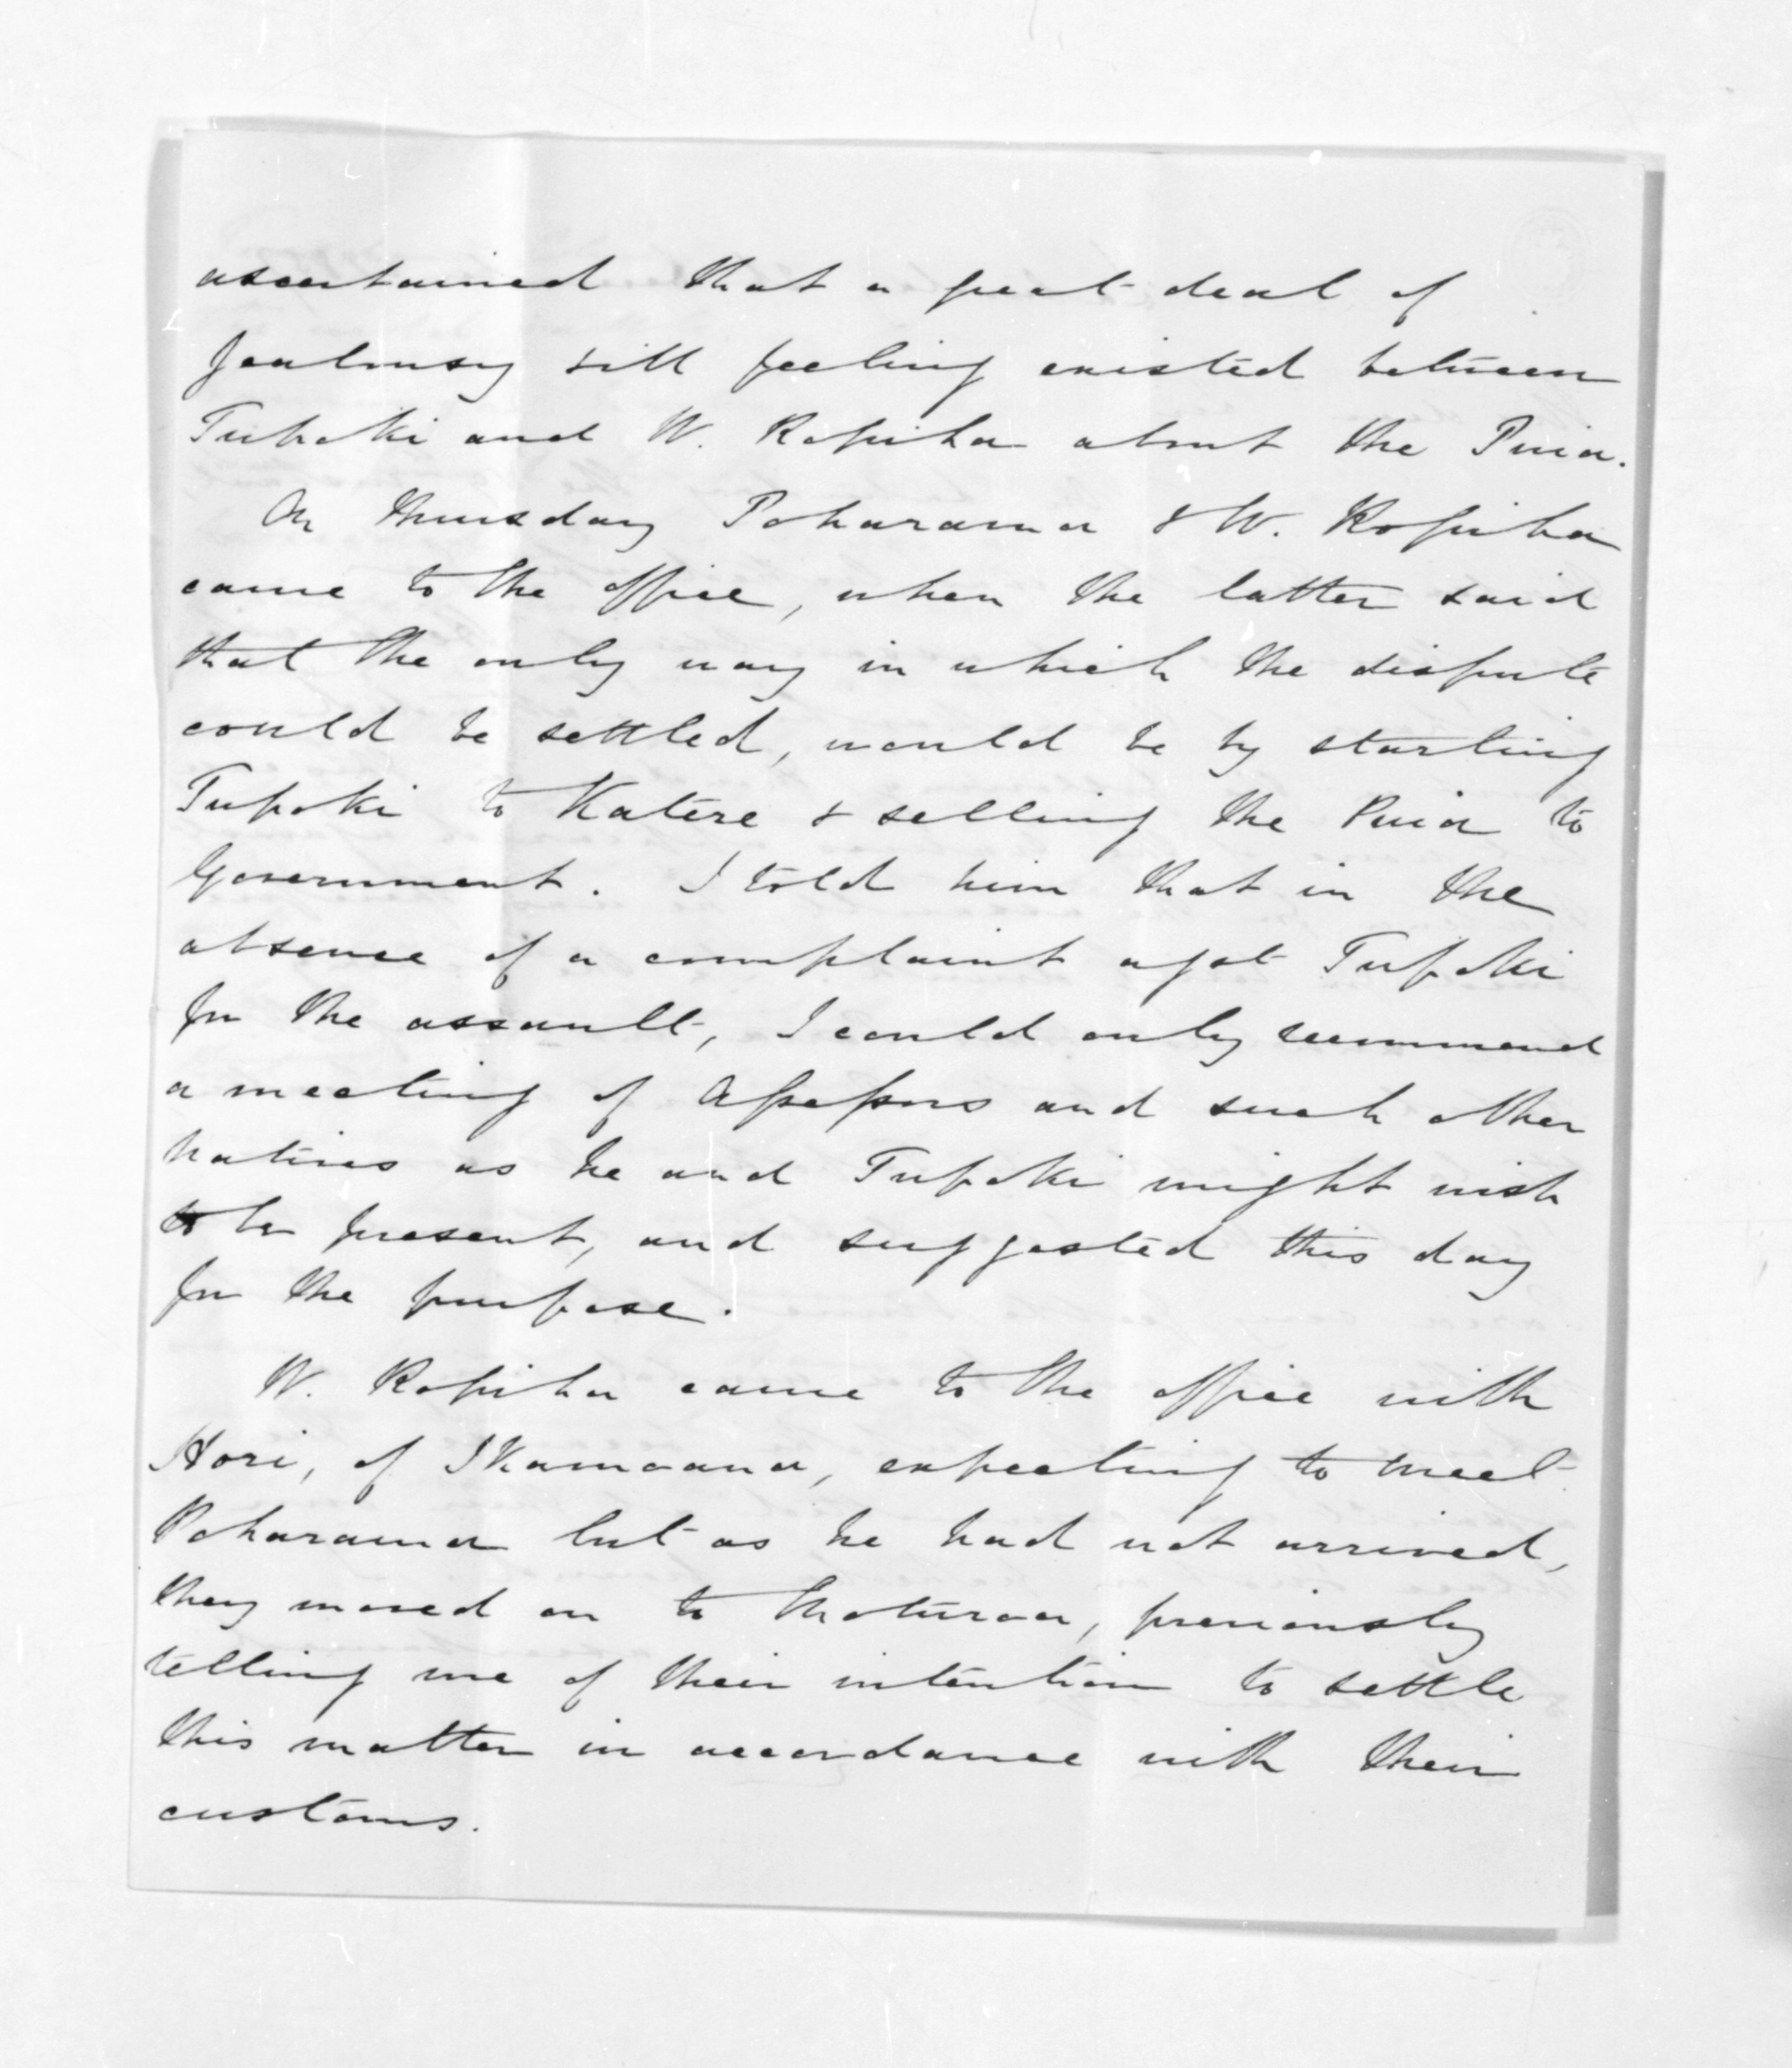 ascertained that a great deal of
jealousy & ill feeling existed between
Tupoki and W. Ropiha about the Puia.
On Thursday Poharama & W. Ropiha
came to the office, when the latter said
that the only way in which the dispute
could be settled, would be by starting
Tupoki to Katere & selling the Puia to
Government. I told him that in the
absence of a complaint agst Tupoki
for the assault, I could only recommend
a meeting of Assessors and such other
natives as he and Tupoki might wish
to be present, and suggested this day
for the purpose.
W. Ropiha came to the office with
Hori, of Ikamoana, expecting to meet
Poharama but as he had not arrived,
they moved on to Moturoa, previously
telling me of their intention to settle
this matter in accordance with their
customs.